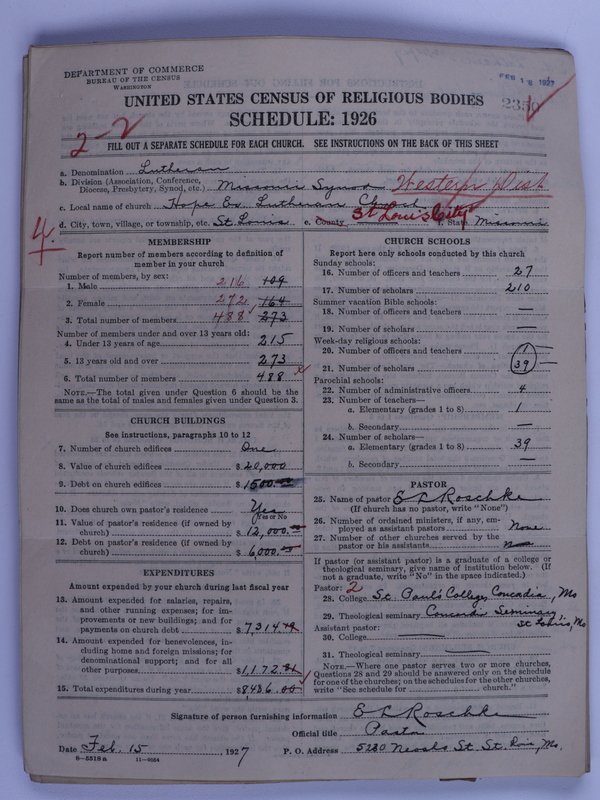 DEPARTMENT OF COMMERCE
BUREAU OF THE CENSUS
WASHINGTON
FEB 18 1927
UNITED STATES CENSUS OF RELIGIOUS BODIES
SCHEDULE: 1926
2-2
FILL OUT A SEPARATE SCHEDULE FOR EACH CHURCH. SEE INSTRUCTIONS ON THE BACK OF THIS SHEET
a. Denomination Lutheran
b. Division (Association, Conference, Diocese, Presbytery, Synod, etc.) Missouri Synod Western Dist
c. Local name of church Hope Ev. Lutheran Church
d. City, town, village, or township, etc. St. Louis e. County St Louis City f. State Missouri
4
MEMBERSHIP
Report number of members according to definition of
member in your church
Number of members, by sex:
1. Male 216 109
2. Female 272 164
3. Total number of members 488 273
Number of members under and over 13 years old:
4. Under 13 years of age 215
5. 13 years old and over 273
6. Total number of members 488
NOTE.—The total given under Question 6 should be the
same as the total of males and females given under Question 3.
CHURCH BUILDINGS
See instructions, paragraphs 10 to 12
7. Number of church edifices One
8. Value of church edifices $20,000
9. Debt on church edifices $1500.00
10. Does church own pastor's residence Yes
Yes or No
11. Value of pastor's residence (if owned by
church) $12,000.00
12. Debt on pastor's residence (if owned by
church) $6,000.00
EXPENDITURES
Amount expended by your church during last fiscal year
13. Amount expended for salaries, repairs,
and other running expenses; for im-
provements or new buildings; and for
payments on church debt $7,314.19
14. Amount expended for benevolences, in-
cluding home and foreign missions; for
denominational support; and for all
other purposes $1,172.81
15. Total expenditures during year $8,486.00
CHURCH SCHOOLS
Report here only schools conducted by this church
Sunday schools:
16. Number of officers and teachers 27
17. Number of scholars 210
Summer vacation Bible schools:
18. Number of officers and teachers —
19. Number of scholars —
Week-day religious schools:
20. Number of officers and teachers 1
21. Number of scholars 39
Parochial schools:
22. Number of administrative officers 4
23. Number of teachers—
a. Elementary (grades 1 to 8) 1
b. Secondary —
24. Number of scholars—
a. Elementary (grades 1 to 8) 39
b. Secondary —
PASTOR
25. Name of pastor E L Roschke
(If church has no pastor, write "None")
26. Number of ordained ministers, if any, em-
ployed as assistant pastors None
27. Number of other churches served by the
pastor or his assistants
If pastor (or assistant pastor) is a graduate of a college or
theological seminary, give name of institution below. (If
not a graduate, write "No" in the space indicated.)
Pastor: 2
28. College St. Paul's College, Concordia, Mo
29. Theological seminary Concordia Seminary,
St Louis, Mo
Assistant pastor:
30. College
31. Theological seminary
NOTE.—Where one pastor serves two or more churches,
Questions 28 and 29 should be answered only on the schedule
for one of the churches; on the schedules for the other churches,
write "See schedule for church."
Signature of person furnishing information E L Roschke
Official title Pastor
Date Feb. 15 1927 P. O. Address St. Louis, Mo.
8—5518a 11—9054